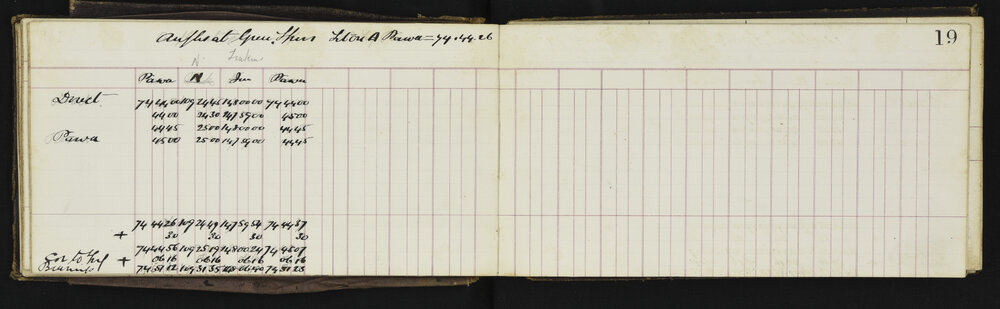 at Green Spur Stn A Pawa = 74.44.26
19
N
Pawa N Jun Pawa
Direct 74 44 00 109 24 45 148 00 00 74 44 00
44 00 24 30 147 59 00 45 00
44 45 25 00 148 00 00 44 45
Pawa 45 00 25 00 147 59 00 44 45
74 44 26 109 24 49 147 59 54 74 44 37
+ 30 30 30 30
74 44 56 109 25 19 148 00 24 74 45 07
Cor to + 06 16 06 16 06 16 06 16
74 51 12 109 31 35 148 06 40 74 51 23